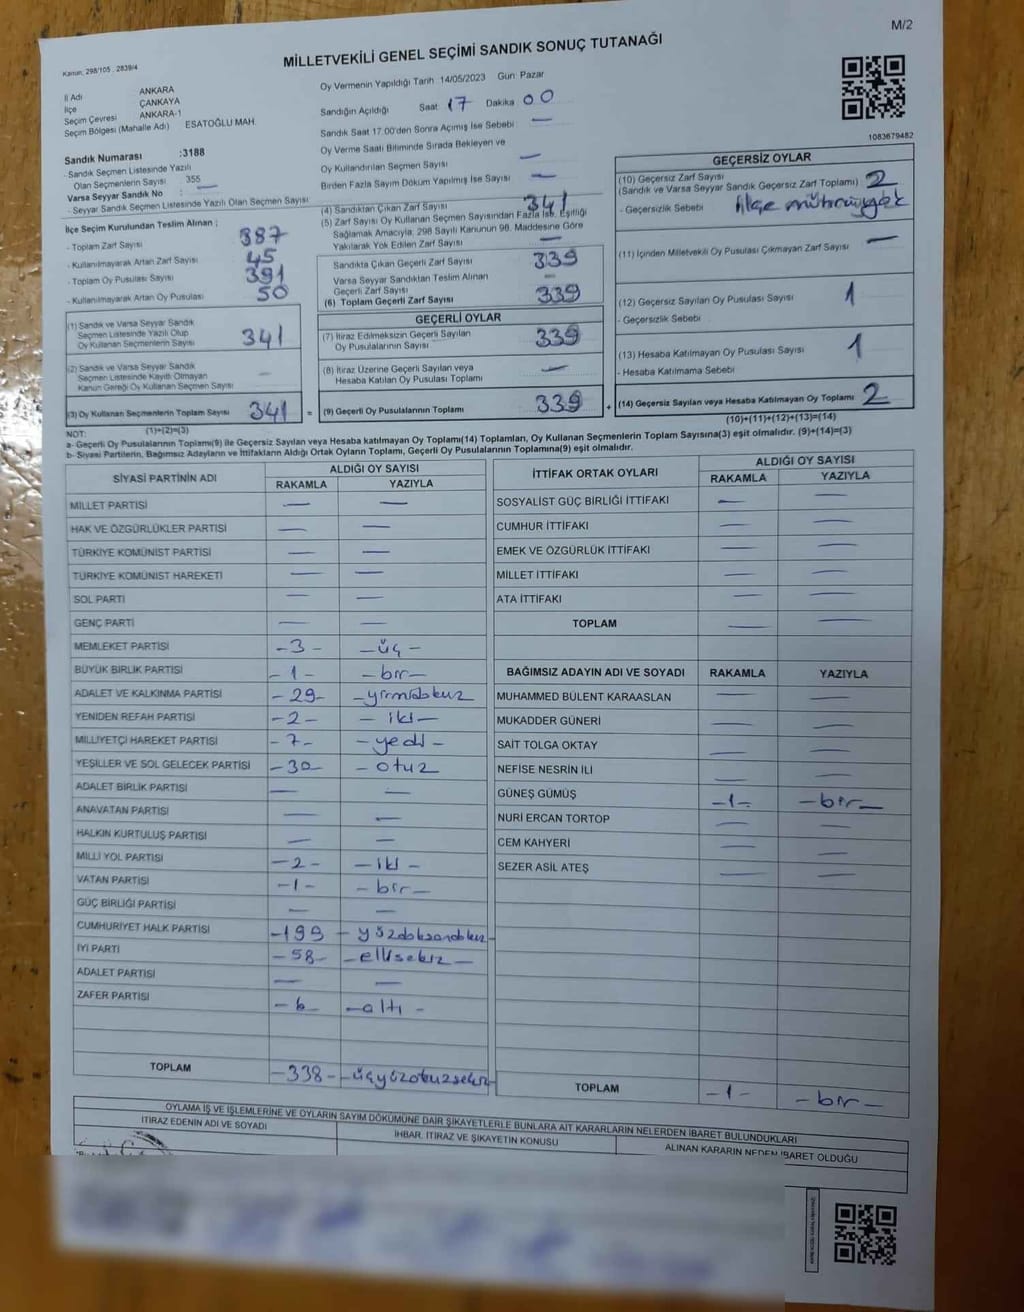 M/2
MİLLETVEKİLİ GENEL SEÇİMİ SANDIK SONUÇ TUTANAĞI
Kanun, 298/105 , 2839/4
İl Adı ANKARA
İlçe ÇANKAYA
Seçim Çevresi ANKARA-1
Seçim Bölgesi (Mahalle Adı) ESATOĞLU MAH.
Sandık Numarası :3188
- Sandık Seçmen Listesinde Yazılı
Olan Seçmenlerin Sayısı 355
Varsa Seyyar Sandık No : —
- Seyyar Sandık Seçmen Listesinde Yazılı Olan Seçmen Sayısı
İlçe Seçim Kurulundan Teslim Alınan ;
- Toplam Zarf Sayısı 387
- Kullanılmayarak Artan Zarf Sayısı 45
- Toplam Oy Pusulası Sayısı 391
- Kullanılmayarak Artan Oy Pusulası 50
(1) Sandık ve Varsa Seyyar Sandık
Seçmen Listesinde Yazılı Olup
Oy Kullanan Seçmenlerin Sayısı 341
(2) Sandık ve Varsa Seyyar Sandık
Seçmen Listesinde Kayıtlı Olmayan
Kanun Gereği Oy Kullanan Seçmen Sayısı —
(3) Oy Kullanan Seçmenlerin Toplam Sayısı 341 =
(1)+(2)=(3)
Oy Vermenin Yapıldığı Tarih 14/05/2023 Gün: Pazar
Sandığın Açıldığı Saat 17 Dakika 00
Sandık Saat 17.00'den Sonra Açımış İse Sebebi —
Oy Verme Saati Bitiminde Sırada Bekleyen ve
Oy Kullandırılan Seçmen Sayısı —
Birden Fazla Sayım Döküm Yapılmış İse Sayısı —
(4) Sandıktan Çıkan Zarf Sayısı 341
(5) Zarf Sayısı Oy Kullanan Seçmen Sayısından Fazla İse, Eşitliği
Sağlamak Amacıyla, 298 Sayılı Kanunun 98. Maddesine Göre
Yakılarak Yok Edilen Zarf Sayısı —
Sandıkta Çıkan Geçerli Zarf Sayısı 339
Varsa Seyyar Sandıktan Teslim Alınan
Geçerli Zarf Sayısı —
(6) Toplam Geçerli Zarf Sayısı 339
GEÇERLİ OYLAR
(7) İtiraz Edilmeksizin Geçerli Sayılan
Oy Pusulalarının Sayısı 339
(8) İtiraz Üzerine Geçerli Sayılan veya
Hesaba Katılan Oy Pusulası Toplamı —
(9) Geçerli Oy Pusulalarının Toplamı 339 +
1083679482
GEÇERSİZ OYLAR
(10) Geçersiz Zarf Sayısı
(Sandık ve Varsa Seyyar Sandık Geçersiz Zarf Toplamı) 2
- Geçersizlik Sebebi ilçe mührü yok
(11) İçinden Milletvekili Oy Pusulası Çıkmayan Zarf Sayısı —
(12) Geçersiz Sayılan Oy Pusulası Sayısı 1
- Geçersizlik Sebebi
(13) Hesaba Katılmayan Oy Pusulası Sayısı 1
- Hesaba Katılmama Sebebi
(14) Geçersiz Sayılan veya Hesaba Katılmayan Oy Toplamı 2
(10)+(11)+(12)+(13)=(14)
NOT:
a- Geçerli Oy Pusulalarının Toplamı(9) ile Geçersiz Sayılan veya Hesaba katılmayan Oy Toplamı(14) Toplamları, Oy Kullanan Seçmenlerin Toplam Sayısına(3) eşit olmalıdır. (9)+(14)=(3)
b- Siyasi Partilerin, Bağımsız Adayların ve İttifakların Aldığı Ortak Oyların Toplamı, Geçerli Oy Pusulalarının Toplamına(9) eşit olmalıdır.
SİYASİ PARTİNİN ADI ALDIĞI OY SAYISI
RAKAMLA YAZIYLA
MİLLET PARTİSİ — —
HAK VE ÖZGÜRLÜKLER PARTİSİ — —
TÜRKİYE KOMÜNİST PARTİSİ — —
TÜRKİYE KOMÜNİST HAREKETİ — —
SOL PARTİ — —
GENÇ PARTİ — —
MEMLEKET PARTİSİ -3- -üç-
BÜYÜK BİRLİK PARTİSİ -1- -bir-
ADALET VE KALKINMA PARTİSİ -29- -yirmidokuz
YENİDEN REFAH PARTİSİ -2- -iki-
MİLLİYETÇİ HAREKET PARTİSİ -7- -yedi-
YEŞİLLER VE SOL GELECEK PARTİSİ -30- -otuz
ADALET BİRLİK PARTİSİ — —
ANAVATAN PARTİSİ — —
HALKIN KURTULUŞ PARTİSİ — —
MİLLİ YOL PARTİSİ -2- -iki-
VATAN PARTİSİ -1- -bir-
GÜÇ BİRLİĞİ PARTİSİ — —
CUMHURİYET HALK PARTİSİ -199- yüzdoksandokuz-
İYİ PARTİ -58- -ellisekiz-
ADALET PARTİSİ — —
ZAFER PARTİSİ -6- -altı-
TOPLAM -338- -üçyüzotuzsekiz-
İTTİFAK ORTAK OYLARI ALDIĞI OY SAYISI
RAKAMLA YAZIYLA
SOSYALİST GÜÇ BİRLİĞİ İTTİFAKI — —
CUMHUR İTTİFAKI — —
EMEK VE ÖZGÜRLÜK İTTİFAKI — —
MİLLET İTTİFAKI — —
ATA İTTİFAKI — —
TOPLAM — —
BAĞIMSIZ ADAYIN ADI VE SOYADI RAKAMLA YAZIYLA
MUHAMMED BÜLENT KARAASLAN — —
MUKADDER GÜNERİ — —
SAİT TOLGA OKTAY — —
NEFİSE NESRİN İLİ — —
GÜNEŞ GÜMÜŞ -1- -bir-
NURİ ERCAN TORTOP — —
CEM KAHYERİ — —
SEZER ASİL ATEŞ — —
TOPLAM -1- -bir-
OYLAMA İŞ VE İŞLEMLERİNE VE OYLARIN SAYIM DÖKÜMÜNE DAİR ŞİKAYETLERLE BUNLARA AİT KARARLARIN NELERDEN İBARET BULUNDUKLARI
İTİRAZ EDENİN ADI VE SOYADI İHBAR, İTİRAZ VE ŞİKAYETİN KONUSU ALINAN KARARIN NEDEN İBARET OLDUĞU